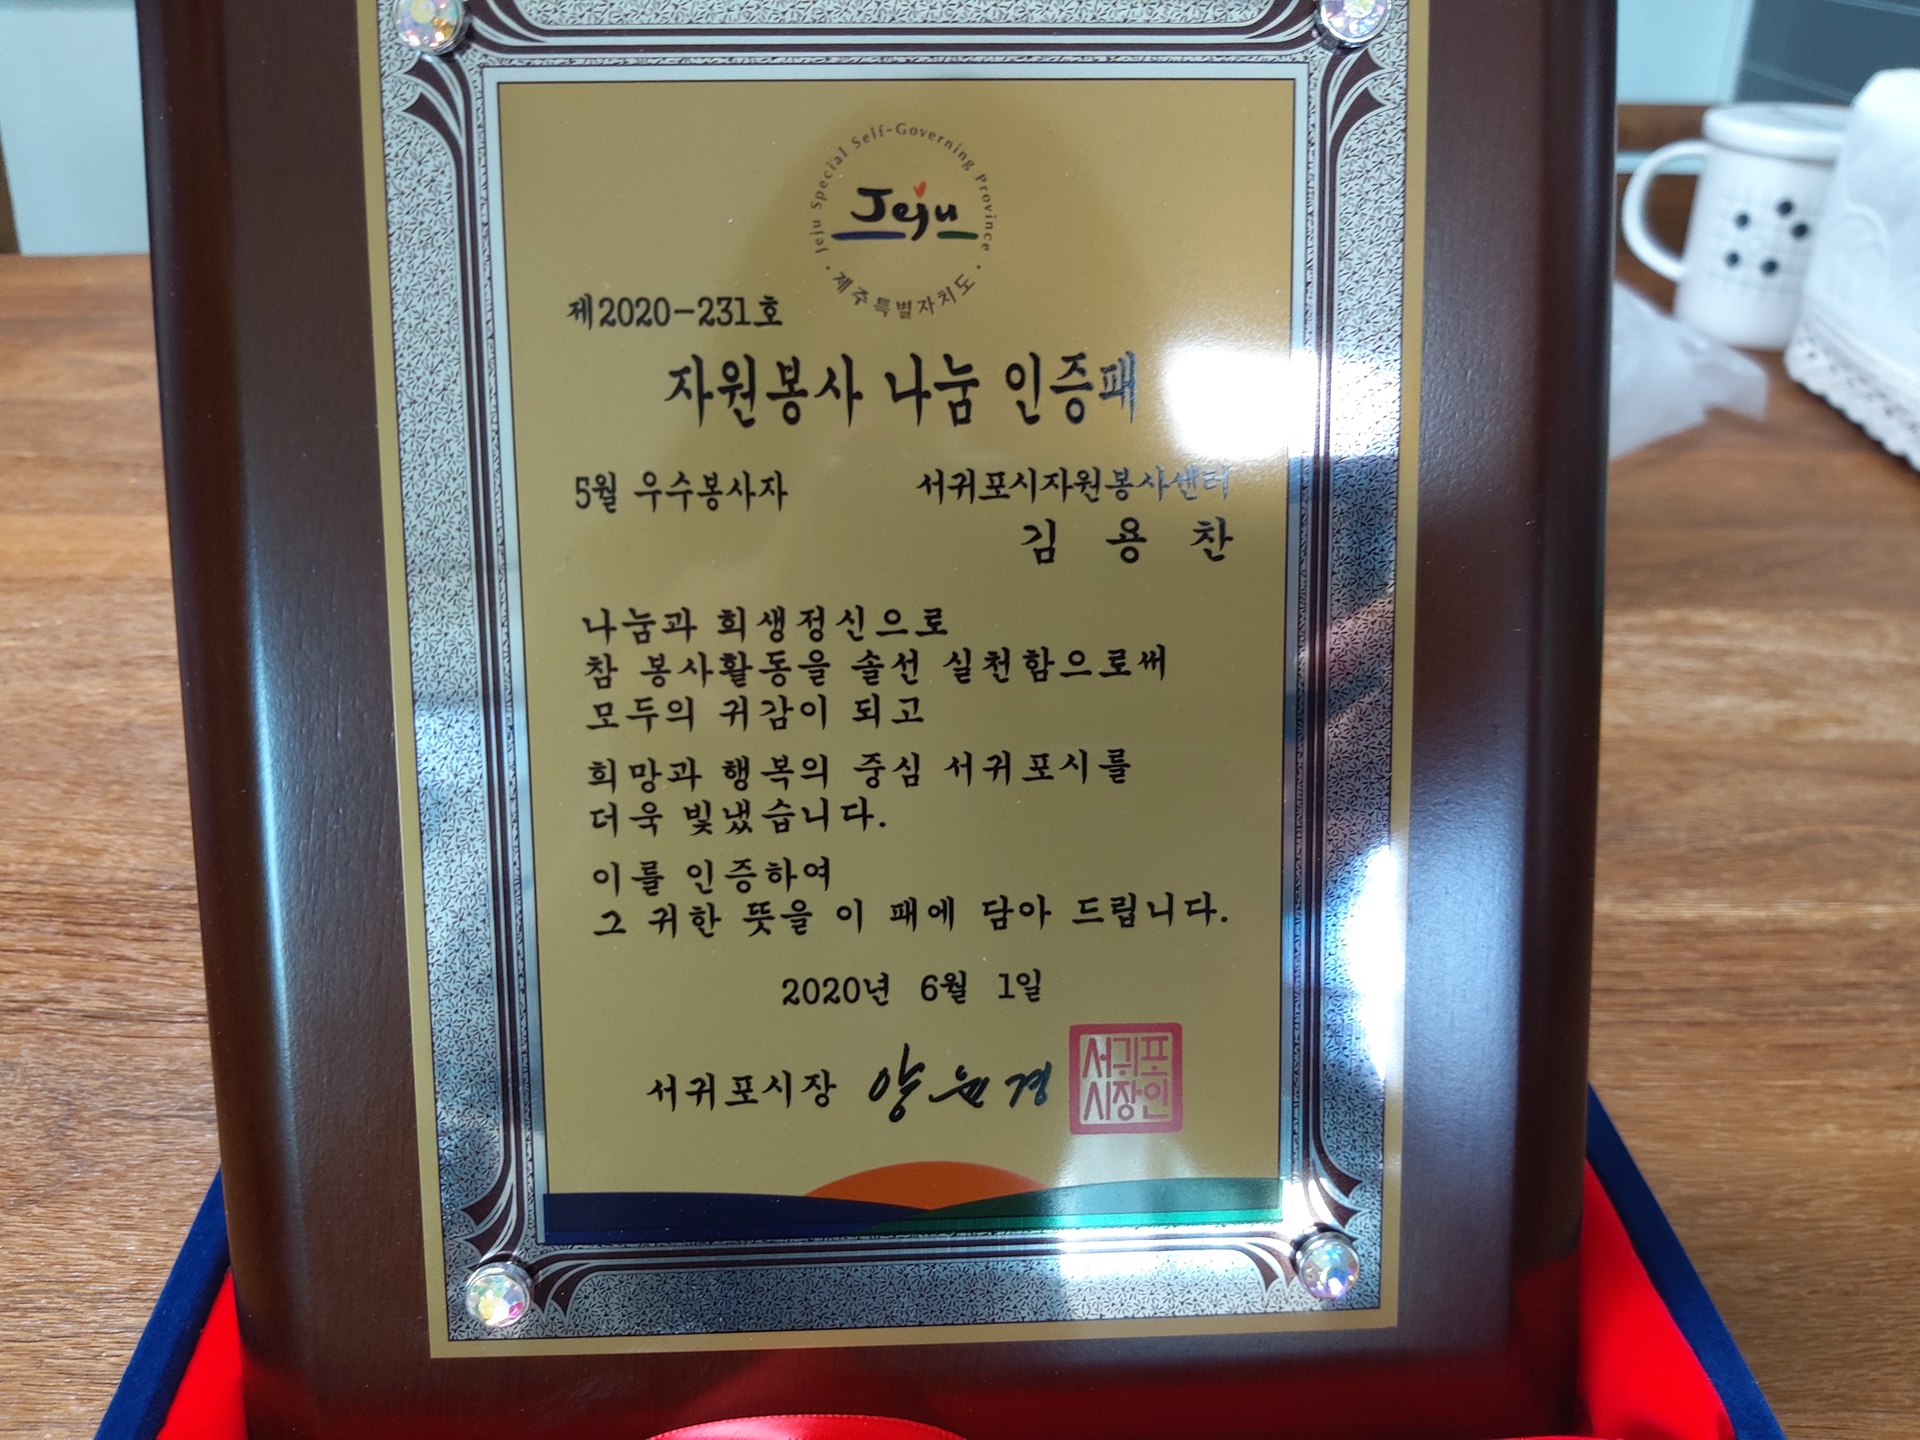 Jeju Special Self-Governing Province
Jeju
제주특별자치도
제2020-231호
자원봉사 나눔 인증패
5월 우수봉사자 서귀포시자원봉사센터
김 용 찬
나눔과 희생정신으로
참 봉사활동을 솔선 실천함으로써
모두의 귀감이 되고
희망과 행복의 중심 서귀포시를
더욱 빛냈습니다.
이를 인증하여
그 귀한 뜻을 이 패에 담아 드립니다.
2020년 6월 1일
서귀포시장 양윤경
서귀포
시장인